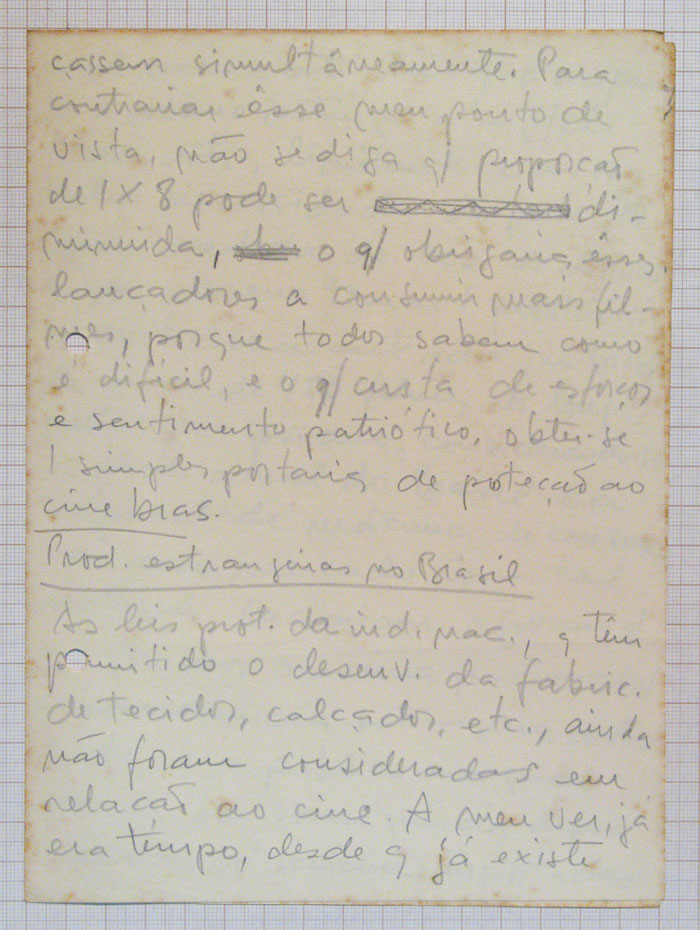 çassem simultâneamente. Para
contrariar êsse meu ponto de
vista, não se diga q/ proporção
de 1 X 8 pode ser di-
minuida, o q/ obrigaria êsses
lançadores a consumir mais fil-
mes, porque todos sabem como
é dificil, e o q/ custa de esforços
e sentimento patriótico, obter-se
1 simples portaria de proteção ao
cine bras.
Prod. estrangeiras no Brasil
As leis prot. da ind. nac., q têm
permitido o desenv. da fabric.
de tecidos, calçados, etc., ainda
não foram consideradas em
relação ao cine. A meu ver, já
era tempo, desde q já existe